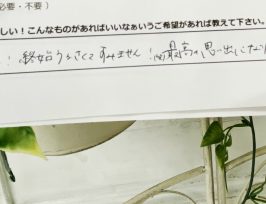 必要・不要)
しい!こんなものがあればいいなぁいうご希望があれば教えて下さい。
!終始うるさくてすみません!最高の思い出になり